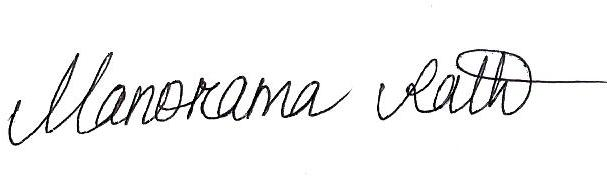 Manorama Rath